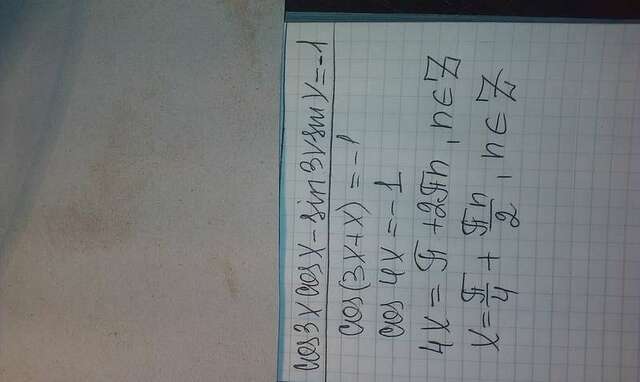 cos3x cosx - sin3x sinx = -1
cos(3x+x) = -1
cos 4x = -1
4x = π + 2πn, n ∈ Z
x = π/4 + πn/2, n ∈ Z